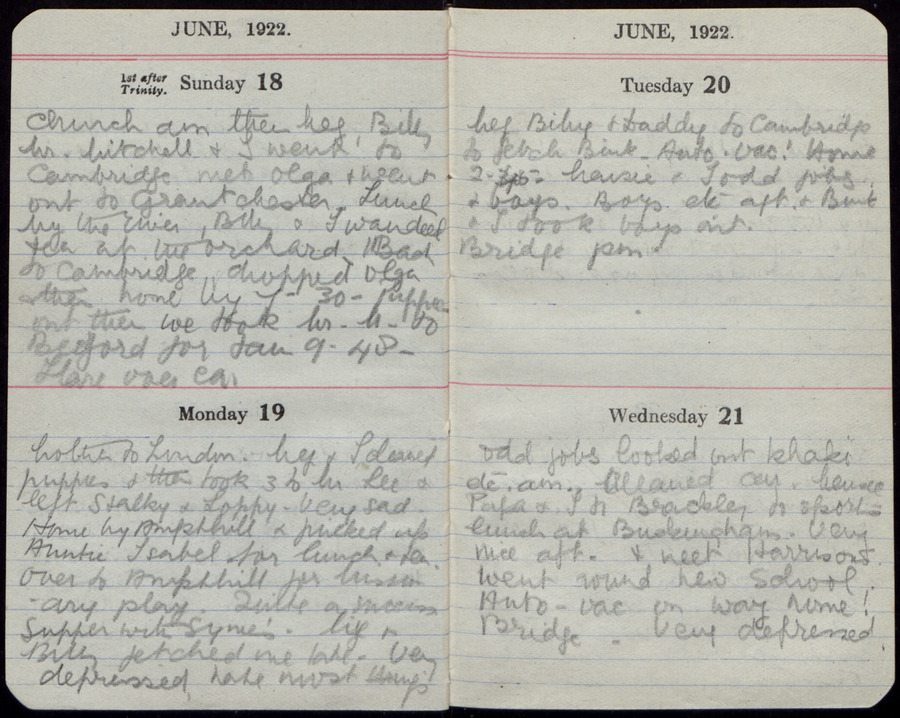 JUNE, 1922.
1st after Trinity. Sunday 18
Church am then Meg, Billy
Mr. Mitchell & I went to
Cambridge met Olga & went
out to Grantchester. Lunch
by the river, Billy & I wandered
tea at the Orchard. Back
to Cambridge, dropped Olga
then home by 7-30- puppies
out then we took Mr. M- to
Bedford for train 9-48-
car
Monday 19
Mother to London. Meg & I cleaned
puppies & then took 3 to Mr. Lee &
left Stalky & Loppy. Very sad.
Home by Ampthill & picked up
Auntie Isabel for lunch & tea.
Over to Ampthill for mission
-ary play. Quite a success
Supper with Syme's. Meg &
Billy fetched me late. Very
depressed, hate most things
JUNE, 1922.
Tuesday 20
Meg Billy & Daddy to Cambridge
to fetch Bink. Auto-vac! Home
2-30- & Todd jobs
& boys. Boys etc aft. & Bink
& I took boys out.
Bridge pm.
Wednesday 21
Odd jobs looked out khaki
etc. am. Cleaned car.
Papa & I to Brackley to sports
lunch at Buckingham. Very
nice aft. & meet Harrisons.
Went round new School.
Auto-vac on way home!
Bridge - Very depressed